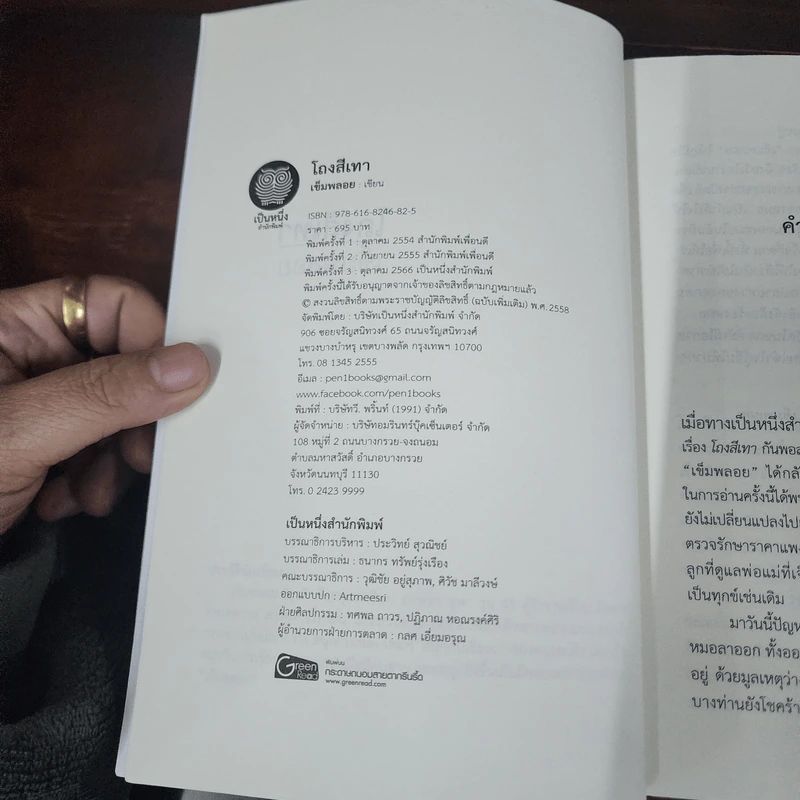 โถงสีเทา
เข็มพลอย : เขียน
เป็นหนึ่ง
สำนักพิมพ์
ISBN : 978-616-8246-82-5
ราคา : 695 บาท
พิมพ์ครั้งที่ 1 : ตุลาคม 2554 สำนักพิมพ์เพื่อนดี
พิมพ์ครั้งที่ 2 : กันยายน 2555 สำนักพิมพ์เพื่อนดี
พิมพ์ครั้งที่ 3 : ตุลาคม 2566 เป็นหนึ่งสำนักพิมพ์
พิมพ์ครั้งนี้ได้รับอนุญาตจากเจ้าของลิขสิทธิ์ตามกฎหมายแล้ว
© สงวนลิขสิทธิ์ตามพระราชบัญญัติลิขสิทธิ์ (ฉบับเพิ่มเติม) พ.ศ.2558
จัดพิมพ์โดย : บริษัทเป็นหนึ่งสำนักพิมพ์ จำกัด
906 ซอยจรัญสนิทวงศ์ 65 ถนนจรัญสนิทวงศ์
แขวงบางบำหรุ เขตบางพลัด กรุงเทพฯ 10700
โทร. 08 1345 2555
อีเมล : pen1books@gmail.com
www.facebook.com/pen1books
พิมพ์ที่ : บริษัทวี. พริ้นท์ (1991) จำกัด
ผู้จัดจำหน่าย : บริษัทอมรินทร์บุ๊คเซ็นเตอร์ จำกัด
108 หมู่ที่ 2 ถนนบางกรวย-จงถนอม
ตำบลมหาสวัสดิ์ อำเภอบางกรวย
จังหวัดนนทบุรี 11130
โทร. 0 2423 9999
เป็นหนึ่งสำนักพิมพ์
บรรณาธิการบริหาร : ประวิทย์ สุวณิชย์
บรรณาธิการเล่ม : ธนากร ทรัพย์รุ่งเรือง
คณะบรรณาธิการ : วุฒิชัย อยู่สุภาพ, ศิวัช มาลีวงษ์
ออกแบบปก : Artmeesri
ฝ่ายศิลปกรรม : ทศพล ถาวร, ปฏิภาณ หอณรงค์ศิริ
ผู้อำนวยการฝ่ายการตลาด : กลศ เอี่ยมอรุณ
Green Read
พิมพ์บน
กระดาษถนอมสายตากรีนรี้ด
www.greenread.com
คำ
เมื่อทางเป็นหนึ่งสำ
เรื่อง โถงสีเทา กันพอส
“เข็มพลอย” ได้กลั
ในการอ่านครั้งนี้ได้พบ
ยังไม่เปลี่ยนแปลงไป
ตรวจรักษาราคาแพง
ลูกที่ดูแลพ่อแม่ที่เจ็
เป็นทุกข์เช่นเดิม
มาวันนี้ปัญห
หมอลาออก ทั้งออ
อยู่ ด้วยมูลเหตุว่า
บางท่านยังโชคร้า